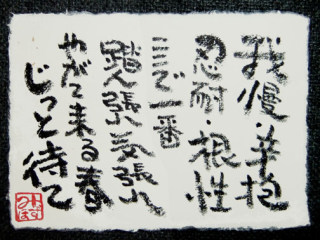 我慢・辛抱
忍耐・根性
ここで一番
踏ん張れ気張れ
やがて来る春
じっと待て